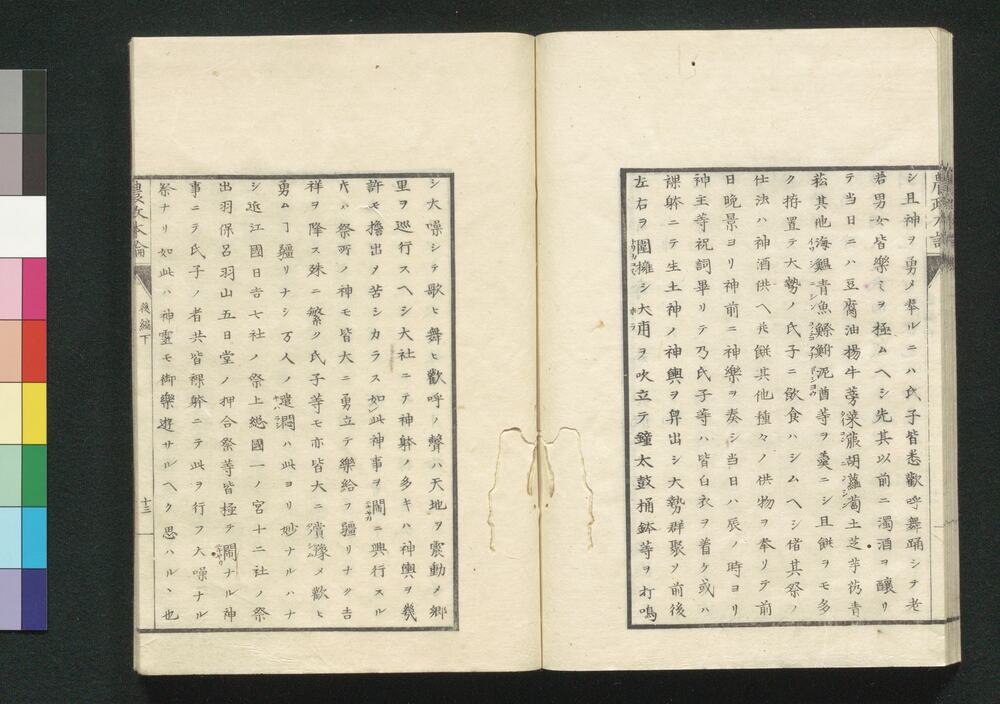 シ且神ヲ勇メ奉ルニハ氏子皆悉歡呼舞踊シテ老
若男女皆樂ミヲ極ムヘシ先其以前ニ濁酒ヲ釀リ
テ当日ニハ豆腐油揚牛蒡菎蒻胡蘿蔔土芝芋礽青
菘其他海鰮青魚鰷鮒泥鰌等ヲ羹ニシ且餅ヲモ多
ク持置テ大勢ノ氏子ニ飲食ハシムヘシ偖其祭ノ
仕法ハ神酒供ヘ幷餅其他種々ノ供物ヲ奉リテ前
日晩景ヨリ神前ニ神樂ヲ奏シ当日ハ辰ノ時ヨリ
神主等祝詞畢リテ乃氏子等ハ皆白衣ヲ着ケ或ハ
裸躰ニテ生土神ノ神輿ヲ舁出シ大勢群聚ソ前後
左右ヲ圍擁シ大甫ヲ吹立テ鐘太鼓桶鉢等ヲ打鳴
シ大噪シテ歌ヒ舞ヒ歡呼ノ聲ハ天地ヲ震動メ郷
里ヲ巡行スヘシ大社ニテ神躰ノ多キハ神輿ヲ幾
許モ擔出ヲ苦シカラス如此神事ヲ鬧ニ興行スル
片ハ祭所ノ神モ皆大ニ勇立テ樂給フ疆リナク吉
祥ヲ降ス殊ニ繁ク氏子等モ亦皆大ニ濆豫メ歡ヒ
勇ムヿ疆リナシ万人ノ悶ハ此ヨリ妙ナルハナ
シ近江國日吉七社ノ祭上総國一ノ宮十二社ノ祭
出羽保呂羽山五日堂ノ押合祭等皆極テ鬧ナル神
事ニテ氏子ノ者共皆裸躰ニテ此ヲ行フ大噪ナル
祭ナリ如此ハ神靈モ御樂遊サルヘク思ハルヽ也
農政本論
後編下
十三